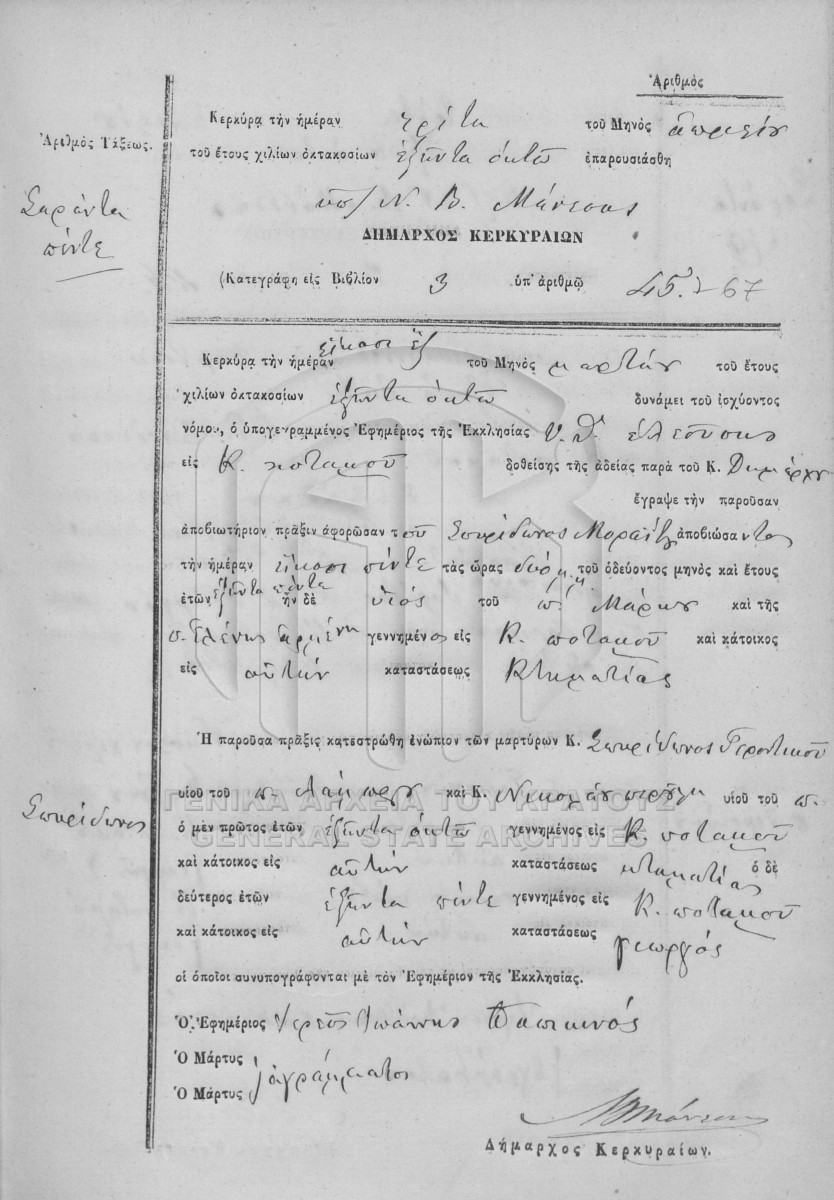 Ἀριθμὸς
Κερκύρᾳ τὴν ἡμέραν τρίτη τοῦ Μηνὸς
Ἀριθμὸς Τάξεως. τοῦ ἔτους χιλίων ὀκτακοσίων ἑξῆντα ὀκτὼ ἐπαρουσιάσθη
Σαράντα πέντε
Ν. Β. Μάνεσης
ΔΗΜΑΡΧΟΣ ΚΕΡΚΥΡΑΙΩΝ
(Κατεγράφη εἰς Βιβλίον 3 ὑπ' ἀριθμῷ 45 67
Κερκύρᾳ τὴν ἡμέραν εἴκοσι ἓξ τοῦ Μηνὸς μαρτίου τοῦ ἔτους
χιλίων ὀκτακοσίων ἑξῆντα ὀκτὼ δυνάμει τοῦ ἰσχύοντος
νόμου, ὁ ὑπογεγραμμένος Ἐφημέριος τῆς Ἐκκλησίας Υ. Θ. ἐλεούσης
εἰς Κ. ποταμοῦ δοθείσης τῆς ἀδείας παρὰ τοῦ Κ. Δημάρχου
ἔγραψε τὴν παροῦσαν
ἀποβιωτήριον πρᾶξιν ἀφορῶσαν τοῦ Σπυρίδωνος Μοραΐτη ἀποβιώσαντος
τὴν ἡμέραν εἴκοσι πέντε τὰς ὥρας δύο μ.μ. τοῦ ὁδεύοντος μηνὸς καὶ ἔτους
ἐτῶν ἑξῆντα πέντε ἦν δὲ υἱὸς τοῦ π. Μάρκου καὶ τῆς
π. Ἑλένης γεννημένος εἰς Κ. ποταμοῦ καὶ κάτοικος
εἰς αὐτὴν καταστάσεως Κτηματίας
Ἡ παροῦσα πρᾶξις κατεστρώθη ἐνώπιον τῶν μαρτύρων Κ. Σπυρίδωνος
υἱοῦ τοῦ π. καὶ Κ. Νικολάου υἱοῦ τοῦ π.
Σπυρίδωνος ὁ μὲν πρῶτος ἐτῶν ἑξῆντα ὀκτὼ γεννημένος εἰς Κ. ποταμοῦ
καὶ κάτοικος εἰς αὐτὴν καταστάσεως κτηματίας ὁ δὲ
δεύτερος ἐτῶν ἑξῆντα πέντε γεννημένος εἰς Κ. ποταμοῦ
καὶ κάτοικος εἰς αὐτὴν καταστάσεως γεωργός
οἱ ὁποῖοι συνυπογράφονται μὲ τὸν Ἐφημέριον τῆς Ἐκκλησίας.
Ὁ Ἐφημέριος Ἱερεὺς Ἰωάννης
Ὁ Μάρτυς
Ὁ Μάρτυς ἀγράμματοι
Δήμαρχος Κερκυραίων.
ΓΕΝΙΚΑ ΑΡΧΕΙΑ ΤΟΥ ΚΡΑΤΟΥΣ
GENERAL STATE ARCHIVES